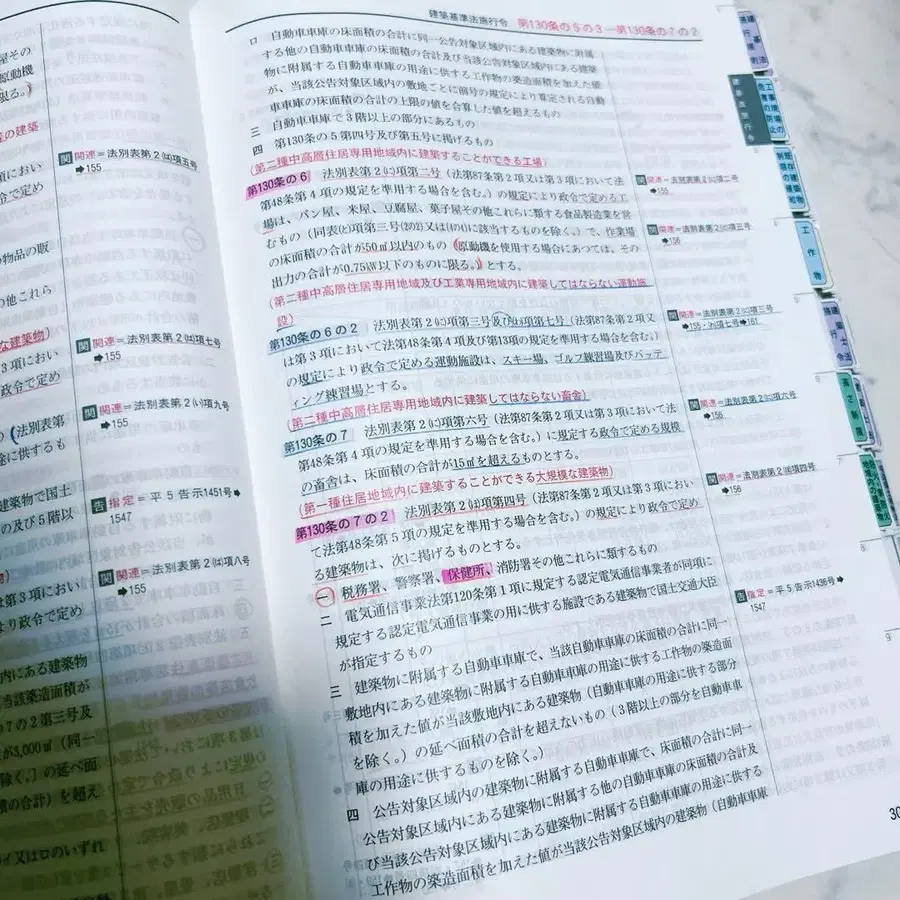 建築基準法施行令 第130条の5の3―第130条の7の2
ロ 自動車車庫の床面積の合計に同一公告対象区域内にある建築物に附属
する他の自動車車庫の床面積の合計及び当該公告対象区域内にある建築
物に附属する自動車車庫の用途に供する工作物の築造面積を加えた値
が、当該公告対象区域内の敷地ごとに前号の規定により算定される自動
車車庫の床面積の合計の上限の値を合算した値を超えるもの
三 自動車車庫で3階以上の部分にあるもの
四 第130条の5第四号及び第五号に掲げるもの
(第二種中高層住居専用地域内に建築することができる工場)
第130条の6 法別表第2㈡項第二号(法第87条第2項又は第3項において法
第48条第4項の規定を準用する場合を含む。)の規定により政令で定める工
場は、パン屋、米屋、豆腐屋、菓子屋その他これらに類する食品製造業を営
むもの(同表㈥項第三号(2の2)又は(4の4)に該当するものを除く。)で、作業場
の床面積の合計が50㎡以内のもの(原動機を使用する場合にあつては、その
出力の合計が0.75kW以下のものに限る。)とする。
(第二種中高層住居専用地域及び工業専用地域内に建築してはならない運動施
設)
第130条の6の2 法別表第2㈡項第三号及び
項第七号(法第87条第2項又
は第3項において法第48条第4項及び第13項の規定を準用する場合を含む。)
の規定により政令で定める運動施設は、スキー場、ゴルフ練習場及びバッテ
ィング練習場とする。
(第二種中高層住居専用地域内に建築してはならない畜舎)
第130条の7 法別表第2㈡項第六号(法第87条第2項又は第3項において法
第48条第4項の規定を準用する場合を含む。)に規定する政令で定める規模
の畜舎は、床面積の合計が15㎡を超えるものとする。
(第一種住居地域内に建築することができる大規模な建築物)
第130条の7の2 法別表第2㈥項第四号(法第87条第2項又は第3項におい
て法第48条第5項の規定を準用する場合を含む。)の規定により政令で定め
る建築物は、次に掲げるものとする。
一 税務署、警察署、保健所、消防署その他これらに類するもの
二 電気通信事業法第120条第1項に規定する認定電気通信事業者が同項に
規定する認定電気通信事業の用に供する施設である建築物で国土交通大臣
が指定するもの
三 建築物に附属する自動車車庫で、当該自動車車庫の床面積の合計に同一
敷地内にある建築物に附属する自動車車庫の用途に供する工作物の築造面
積を加えた値が当該敷地内にある建築物(自動車車庫の用途に供する部分
を除く。)の延べ面積の合計を超えないもの(3階以上の部分を自動車車
庫の用途に供するものを除く。)
四 公告対象区域内の建築物に附属する自動車車庫で、床面積の合計に同一
公告対象区域内にある建築物に附属する他の自動車車庫の床面積の合計及
び当該公告対象区域内にある建築物に附属する自動車車庫の用途に供する
工作物の築造面積を加えた値が当該公告対象区域内の建築物(自動車車庫
関 関連=法別表第2㈡項二号
➡155
関連=法別表第2㈡項三号
➡156
関 関連=法別表第2㈡項三号
➡155・
項七号➡161
関 関連=法別表第2㈡項六号
➡156
関 関連=法別表第2
項四号
➡156
告 指定=平5告示1436号➡
1547
関 関連=法別表第2㈢項五号
➡155
関 関連=法別表第2㈢項七号
➡155
関 関連=法別表第2㈠項九号
➡155
告 指定=平5告示1451号➡
1547
関 関連=法別表第2㈢項八号
➡155
屋その
原動機
限る。)
の建築
項におい
令で定め
物品の販
の他これら
な建築物)
3項におい
政令で定め
(法別表第
途に供するも
建築物で国土
の及び5階以
第3項におい
より政令で定め
内にある建築物
当該築造面積が
7の2第三号及
が3,000㎡(同一
除く。)の延べ面
積の合計)を超え
イ又はロのいずれ
工作物
高さ制限
8
9
30